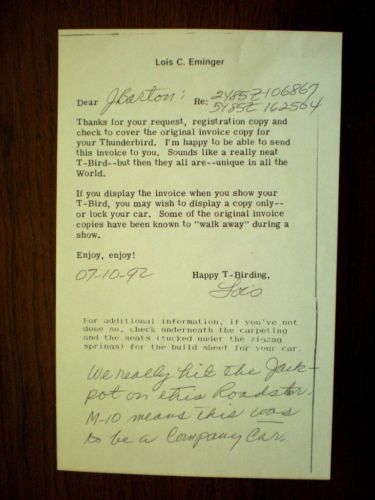 Lois C. Eminger
Dear J Barton: Re: 2Y85Z106867
5Y85Z 162564
Thanks for your request, registration copy and
check to cover the original invoice copy for
your Thunderbird. I'm happy to be able to send
this invoice to you. Sounds like a really neat
T-Bird--but then they all are--unique in all the
World.
If you display the invoice when you show your
T-Bird, you may wish to display a copy only--
or lock your car. Some of the original invoice
copies have been known to "walk away" during a
show.
Enjoy, enjoy!
07-10-92 Happy T-Birding,
Lois
For additional information, if you've not
done so, check underneath the carpeting
and the seats (tucked under the zigzag
springs) for the build sheet for your car.
We really hit the Jack-
pot on this Roadster.
M-10 means this was
to be a Company Car.